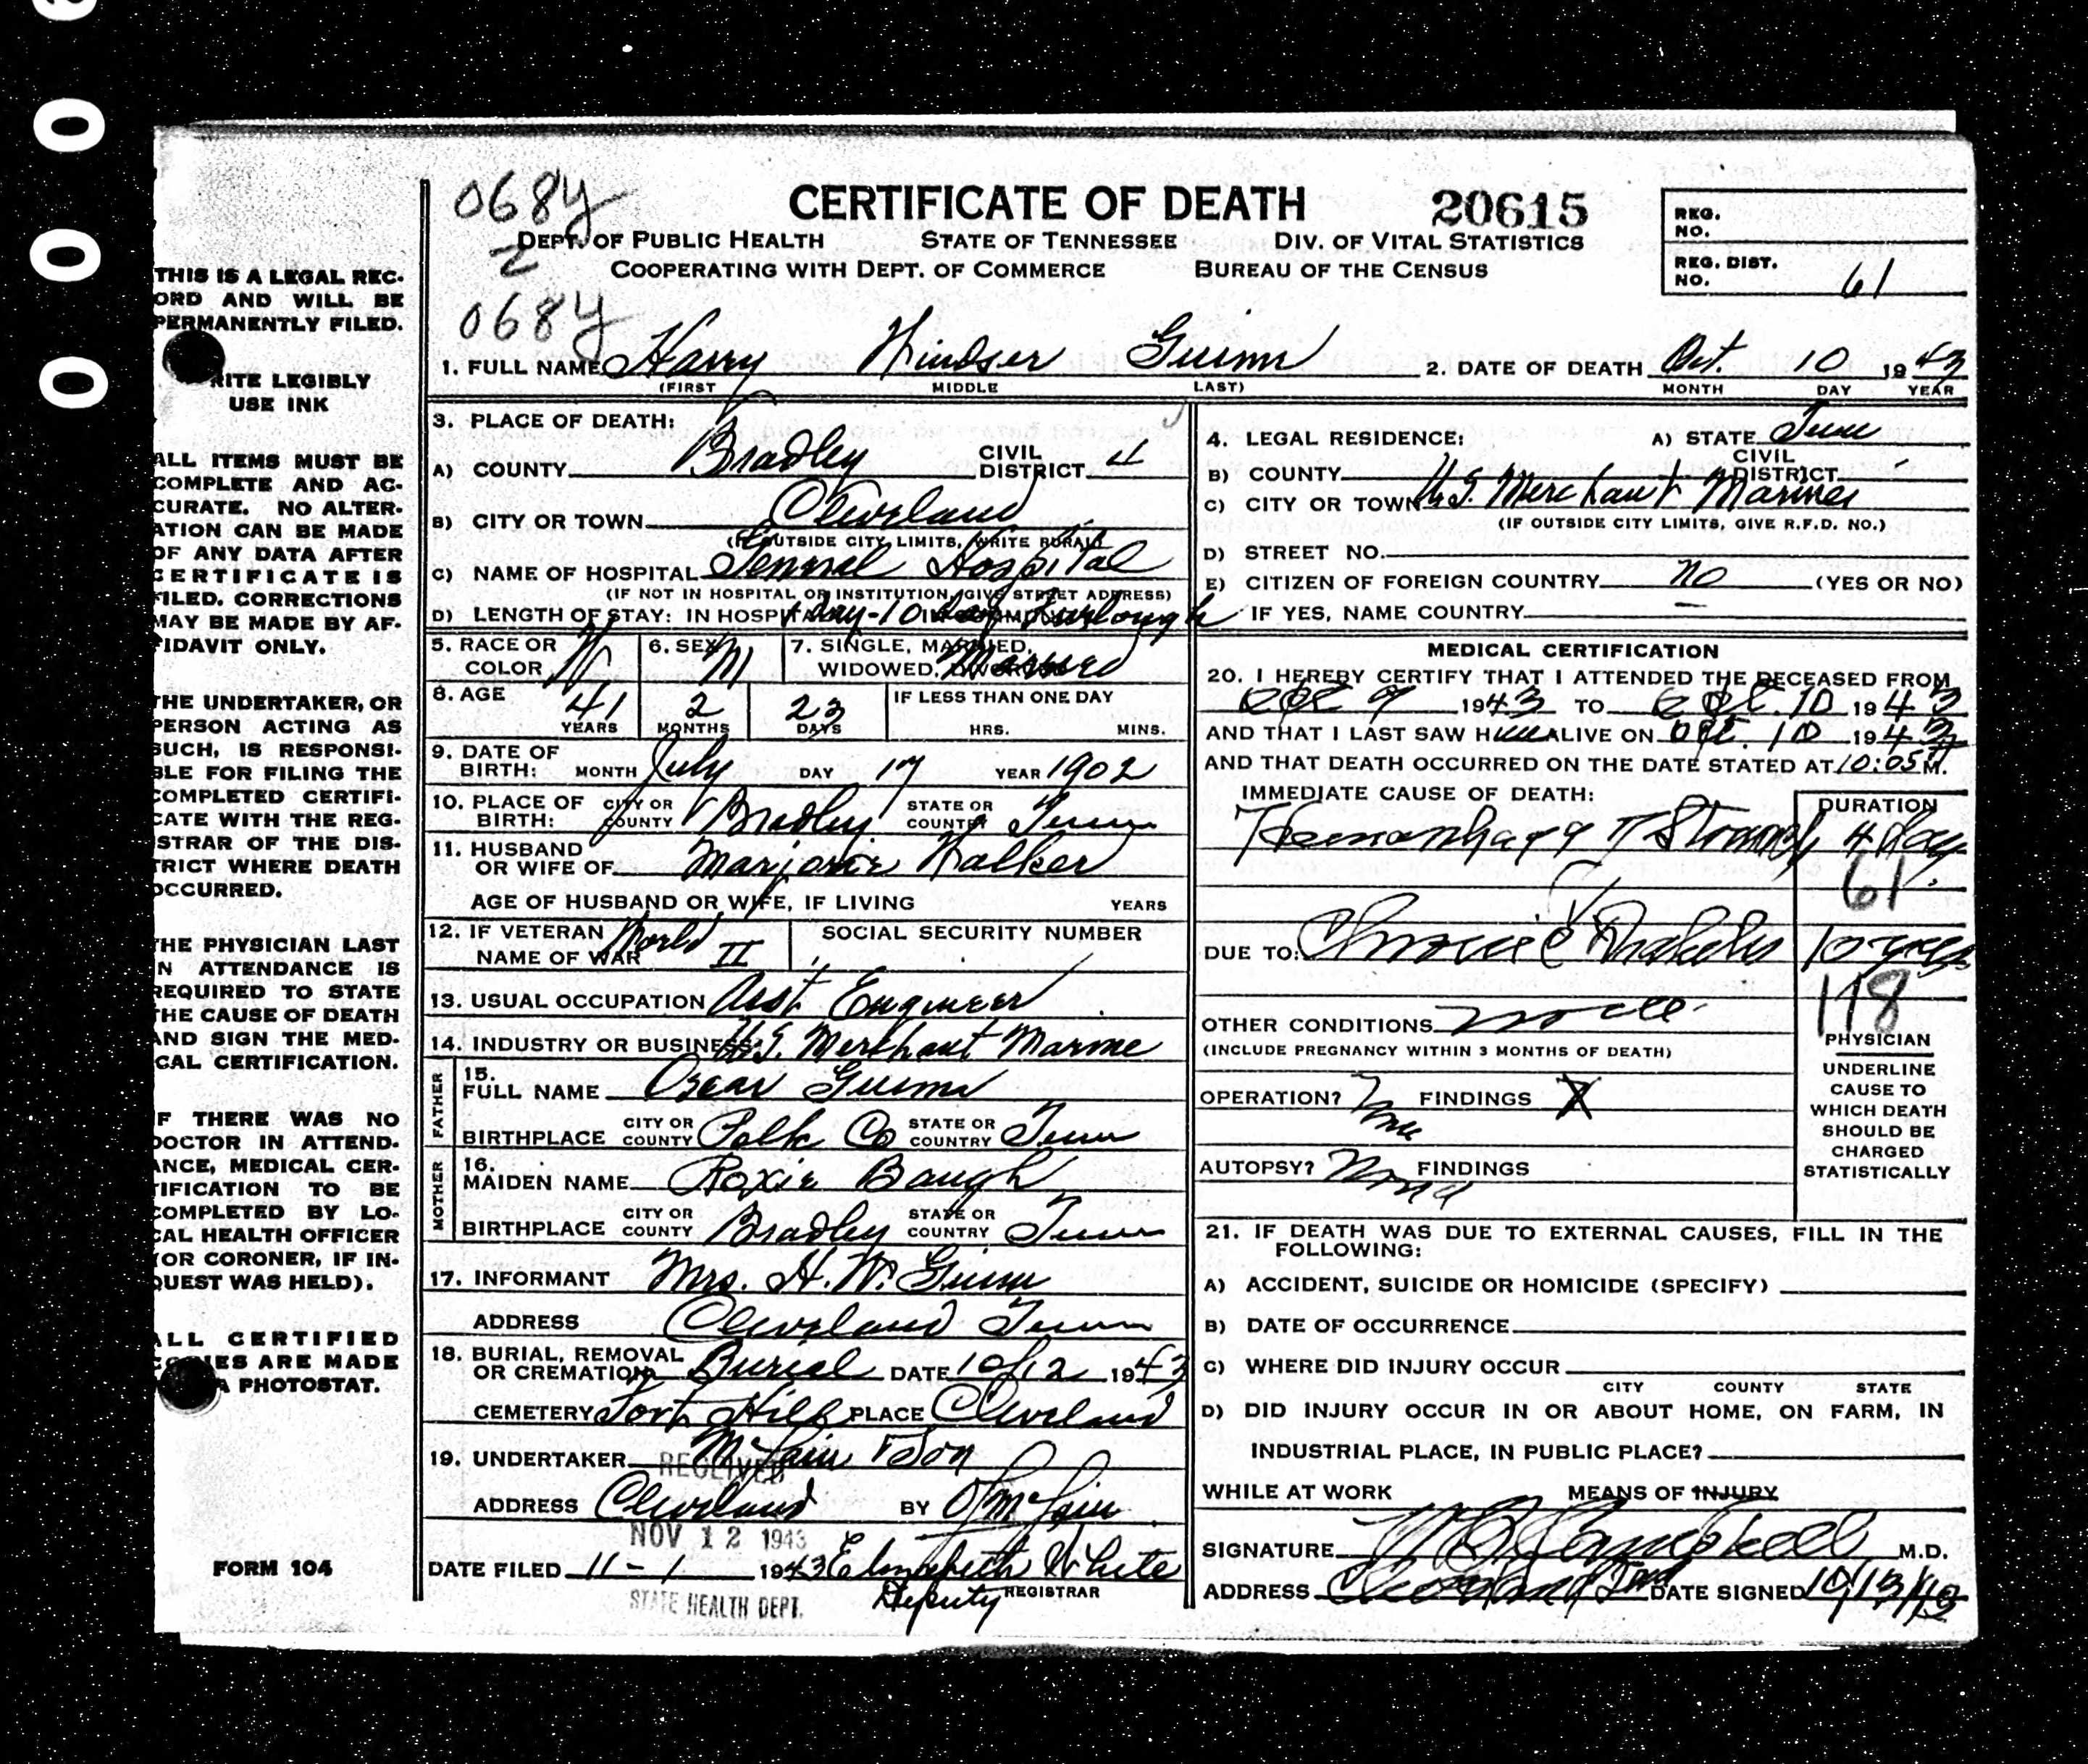 0 0 0
THIS IS A LEGAL REC-
ORD AND WILL BE
PERMANENTLY FILED.
RITE LEGIBLY
USE INK
ALL ITEMS MUST BE
COMPLETE AND AC-
CURATE. NO ALTER-
ATION CAN BE MADE
OF ANY DATA AFTER
CERTIFICATE IS
FILED. CORRECTIONS
MAY BE MADE BY AF-
FIDAVIT ONLY.
THE UNDERTAKER, OR
PERSON ACTING AS
SUCH, IS RESPONSI-
BLE FOR FILING THE
COMPLETED CERTIFI-
CATE WITH THE REG-
STRAR OF THE DIS-
TRICT WHERE DEATH
OCCURRED.
THE PHYSICIAN LAST
N ATTENDANCE IS
REQUIRED TO STATE
THE CAUSE OF DEATH
AND SIGN THE MED-
CAL CERTIFICATION.
F THERE WAS NO
DOCTOR IN ATTEND-
ANCE, MEDICAL CER-
TIFICATION TO BE
COMPLETED BY LO-
CAL HEALTH OFFICER
(OR CORONER, IF IN-
QUEST WAS HELD).
ALL CERTIFIED
COPIES ARE MADE
A PHOTOSTAT.
FORM 104
068y
2
068y
CERTIFICATE OF DEATH 20615
DEPT. OF PUBLIC HEALTH STATE OF TENNESSEE DIV. OF VITAL STATISTICS
COOPERATING WITH DEPT. OF COMMERCE BUREAU OF THE CENSUS
REG. NO.
REG. DIST. NO. 61
1. FULL NAME Harry Windser Guinn 2. DATE OF DEATH Oct. 10 1943
(FIRST MIDDLE LAST) MONTH DAY YEAR
3. PLACE OF DEATH:
A) COUNTY Bradley CIVIL DISTRICT 4
B) CITY OR TOWN Cleveland
(IF OUTSIDE CITY LIMITS, WRITE RURAL)
C) NAME OF HOSPITAL General Hospital
(IF NOT IN HOSPITAL OR INSTITUTION, GIVE STREET ADDRESS)
D) LENGTH OF STAY: IN HOSPITAL 1 day - 10 day Furlough
5. RACE OR COLOR W 6. SEX M 7. SINGLE, MARRIED, WIDOWED, DIVORCED Married
8. AGE 41 YEARS 2 MONTHS 23 DAYS IF LESS THAN ONE DAY HRS. MINS.
9. DATE OF BIRTH: MONTH July DAY 17 YEAR 1902
10. PLACE OF BIRTH: CITY OR COUNTY Bradley STATE OR COUNTRY Tenn
11. HUSBAND OR WIFE OF Marjorie Walker
AGE OF HUSBAND OR WIFE, IF LIVING YEARS
12. IF VETERAN NAME OF WAR World II SOCIAL SECURITY NUMBER
13. USUAL OCCUPATION Asst Engineer
14. INDUSTRY OR BUSINESS U.S. Merchant Marine
FATHER
15. FULL NAME Oscar Guinn
BIRTHPLACE CITY OR COUNTY Polk Co STATE OR COUNTRY Tenn
MOTHER
16. MAIDEN NAME Roxie Baugh
BIRTHPLACE CITY OR COUNTY Bradley STATE OR COUNTRY Tenn
17. INFORMANT Mrs. H. W. Guinn
ADDRESS Cleveland Tenn
18. BURIAL, REMOVAL OR CREMATION Burial DATE 10/12 1943
CEMETERY Fort Hill PLACE Cleveland
19. UNDERTAKER McLain & Son
RECEIVED
ADDRESS Cleveland BY
NOV 12 1943
DATE FILED 11-1 1943 Elizabeth White
Deputy REGISTRAR
STATE HEALTH DEPT.
4. LEGAL RESIDENCE: A) STATE Tenn
B) COUNTY CIVIL DISTRICT
C) CITY OR TOWN U.S. Merchant Marines
(IF OUTSIDE CITY LIMITS, GIVE R.F.D. NO.)
D) STREET NO.
E) CITIZEN OF FOREIGN COUNTRY no (YES OR NO)
IF YES, NAME COUNTRY —
MEDICAL CERTIFICATION
20. I HEREBY CERTIFY THAT I ATTENDED THE DECEASED FROM
Oct 9 1943 TO Oct. 10 1943
AND THAT I LAST SAW HIM ALIVE ON Oct. 10 1943
AND THAT DEATH OCCURRED ON THE DATE STATED AT 10:05 M.
IMMEDIATE CAUSE OF DEATH: DURATION
Hemorrhage Stomach 4 Day
61
DUE TO: Chronic Diabetes 10 years
118
OTHER CONDITIONS none
(INCLUDE PREGNANCY WITHIN 3 MONTHS OF DEATH)
OPERATION? None FINDINGS X
AUTOPSY? None FINDINGS
PHYSICIAN
UNDERLINE
CAUSE TO
WHICH DEATH
SHOULD BE
CHARGED
STATISTICALLY
21. IF DEATH WAS DUE TO EXTERNAL CAUSES, FILL IN THE
FOLLOWING:
A) ACCIDENT, SUICIDE OR HOMICIDE (SPECIFY)
B) DATE OF OCCURRENCE
C) WHERE DID INJURY OCCUR
CITY COUNTY STATE
D) DID INJURY OCCUR IN OR ABOUT HOME, ON FARM, IN
INDUSTRIAL PLACE, IN PUBLIC PLACE?
WHILE AT WORK MEANS OF INJURY
SIGNATURE Campbell M.D.
ADDRESS Cleveland DATE SIGNED 10/13/43